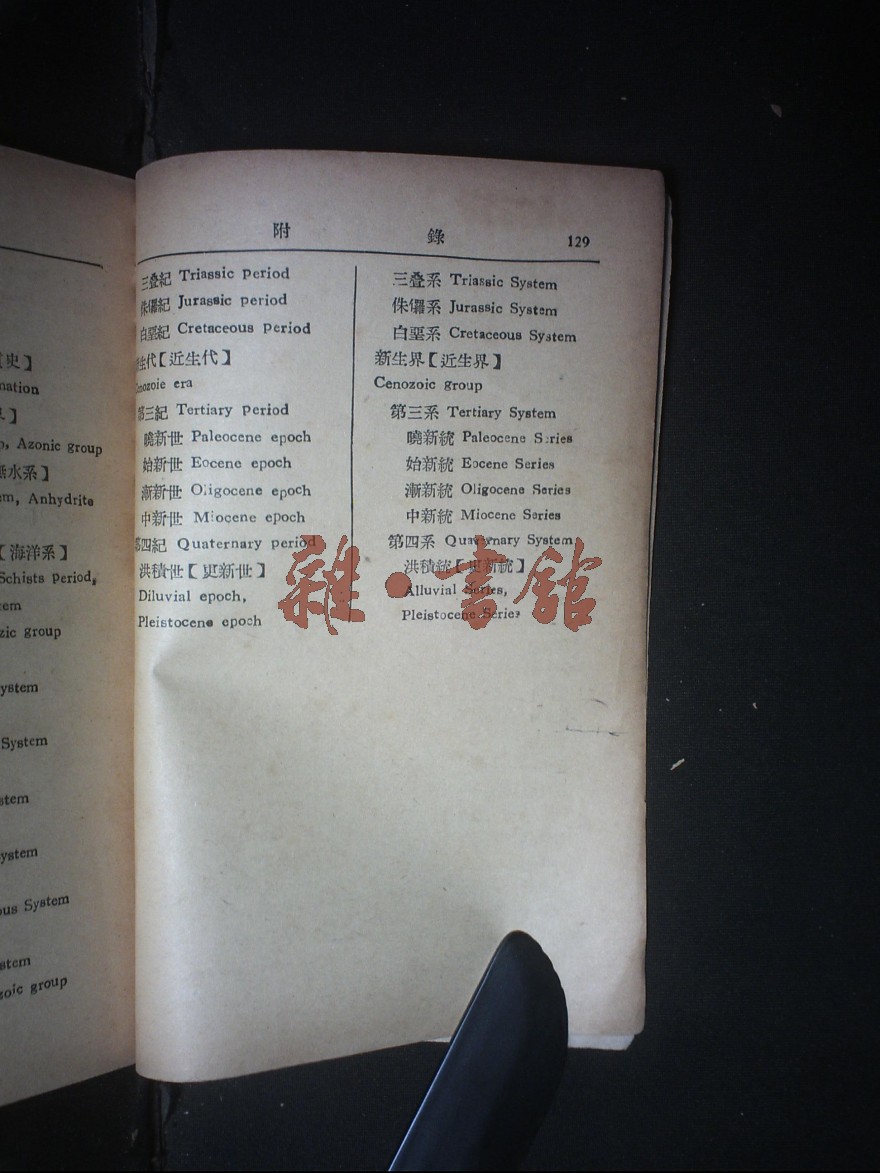 史】
mation
】
Azonic group
水系】
Anhydrite
【海洋系】
Schists Period,
group
System
group
附 錄 129
三叠紀 Triassic period
侏儸紀 Jurassic period
白堊紀 Cretaceous Period
生代【近生代】
era
第三紀 Tertiary Period
曉新世 Paleocene epoch
始新世 Eocene epoch
漸新世 Oligocene epoch
中新世 Miocene epoch
第四紀 Quaternary period
洪積世【更新世】
Diluvial epoch,
Pleistocene epoch
三叠系 Triassic System
侏儸系 Jurassic System
白堊系 Cretaceous System
新生界【近生界】
Cenozoic group
第三系 Tertiary System
曉新統 Paleocene Series
始新統 Eocene Series
漸新統 Oligocene Series
中新統 Miocene Series
第四系 Quaternary System
洪積統【更新統】
Alluvial Series,
Pleistocene Series
雜·書館